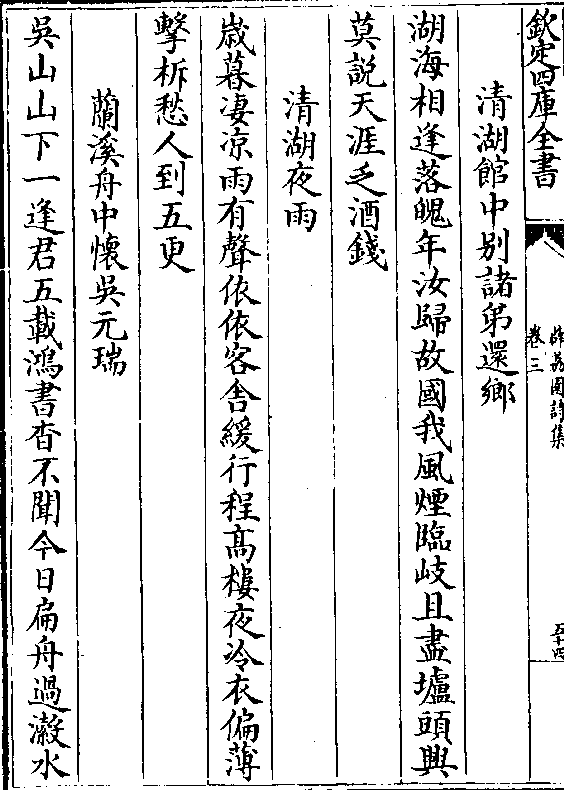 欽定四庫全書
卷三
五十四
清湖館中别諸弟還鄉
湖海相逢落魄年汝歸故國我風煙臨岐且盡壚頭興
莫說天涯乏酒錢
清湖夜雨
歳暮凄凉雨有聲依依客舎緩行程髙樓夜冷衣偏薄
擊柝愁人到五更
蘭溪舟中懷吳元瑞
吳山山下一逢君五載鴻書杳不聞今日扁舟過瀔水